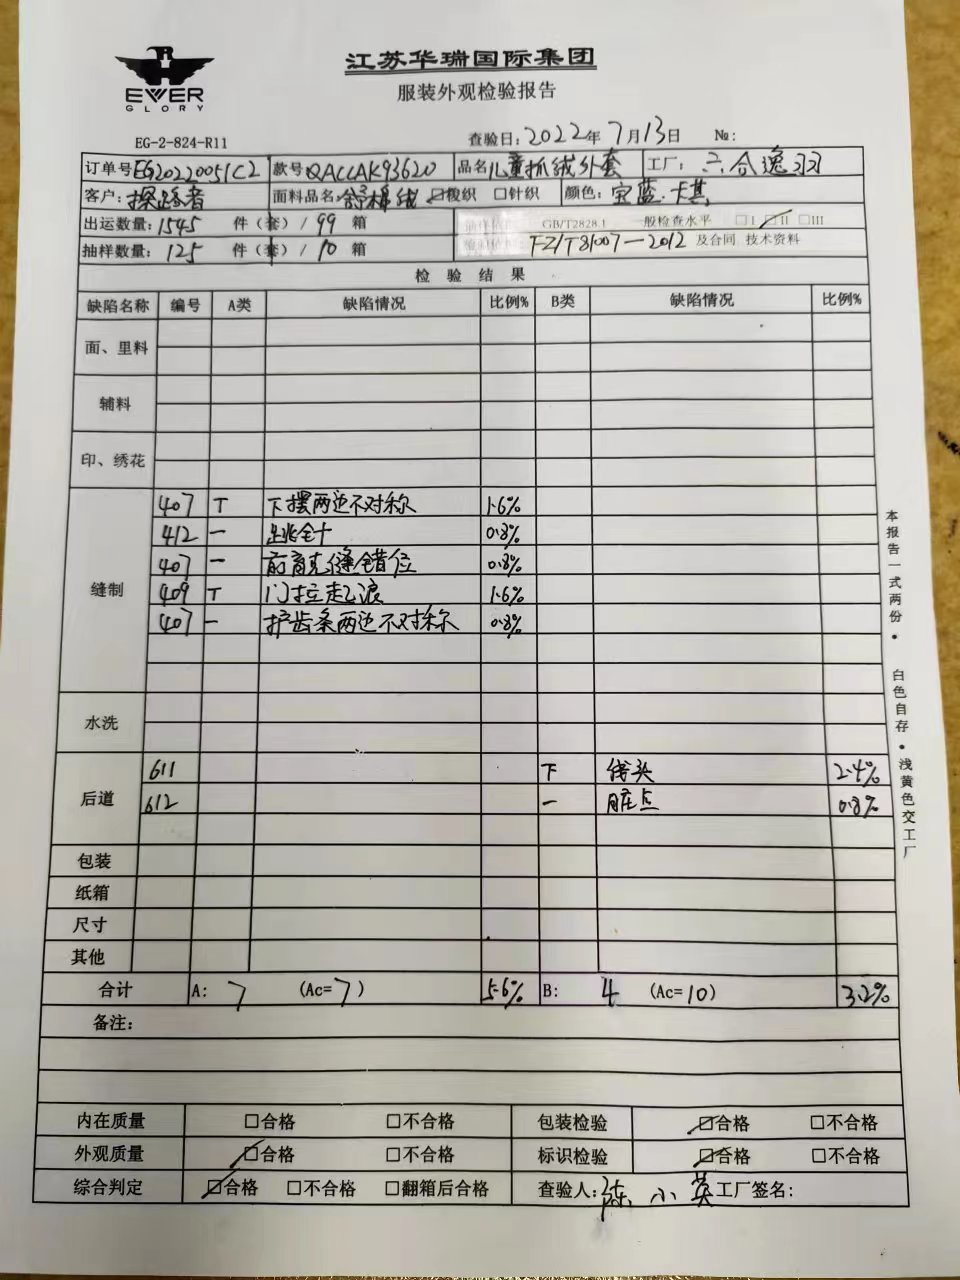 EVER
GLORY
江苏华瑞国际集团
服装外观检验报告
EG-2-824-R11 查验日:2022年7月13日 №:
订单号EG20220051C2 款号QACCAK93620 品名儿童抓绒外套 工厂:六合逸羽
客户:探路者 面料品名:舒棉绒 ☑梭织 □针织 颜色:宝蓝.卡其
出运数量:1545 件(套)/99 箱 GB/T2828.1 一般检查水平 □I ☑II □III
抽样数量:125 件(套)/10 箱 FZ/T81007-2012 及合同 技术资料
检 验 结 果
缺陷名称 编号 A类 缺陷情况 比例% B类 缺陷情况 比例%
面、里料
辅料
印、绣花
缝制
407 T 下摆两边不对称 1.6%
412 一 跳针 0.8%
407 一 前育克缝错位 0.8%
409 T 门拉起浪 1.6%
407 一 护齿条两边不对称 0.8%
水洗
后道
611 下 线头 2.4%
612 一 脏点 0.8%
包装
纸箱
尺寸
其他
合计 A: 7 (Ac=7) 5.6% B: 4 (Ac=10) 3.2%
备注:
内在质量 □合格 □不合格 包装检验 ☑合格 □不合格
外观质量 ☑合格 □不合格 标识检验 ☑合格 □不合格
综合判定 ☑合格 □不合格 □翻箱后合格 查验人:陈小英 工厂签名:
本报告一式两份.白色自存.浅黄色交工厂